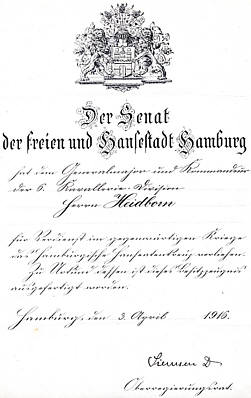 Der Senat
der freien und Hansestadt Hamburg
hat dem Generalmajor und Kommandeur
der 6. Kavallerie-Division
Herrn Heidborn
für Verdienst im gegenwärtigen Kriege
das Hamburgische Hanseatenkreuz verliehen.
Zu Urkund dessen ist dieses Besitzzeugnis
ausgefertigt worden.
Hamburg, den 3. April 1916.
Oberregierungsrat.